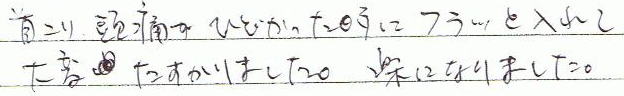 首こり 頭痛がひどかった時にフラッと入れて
大変 たすかりました。 楽になりました。